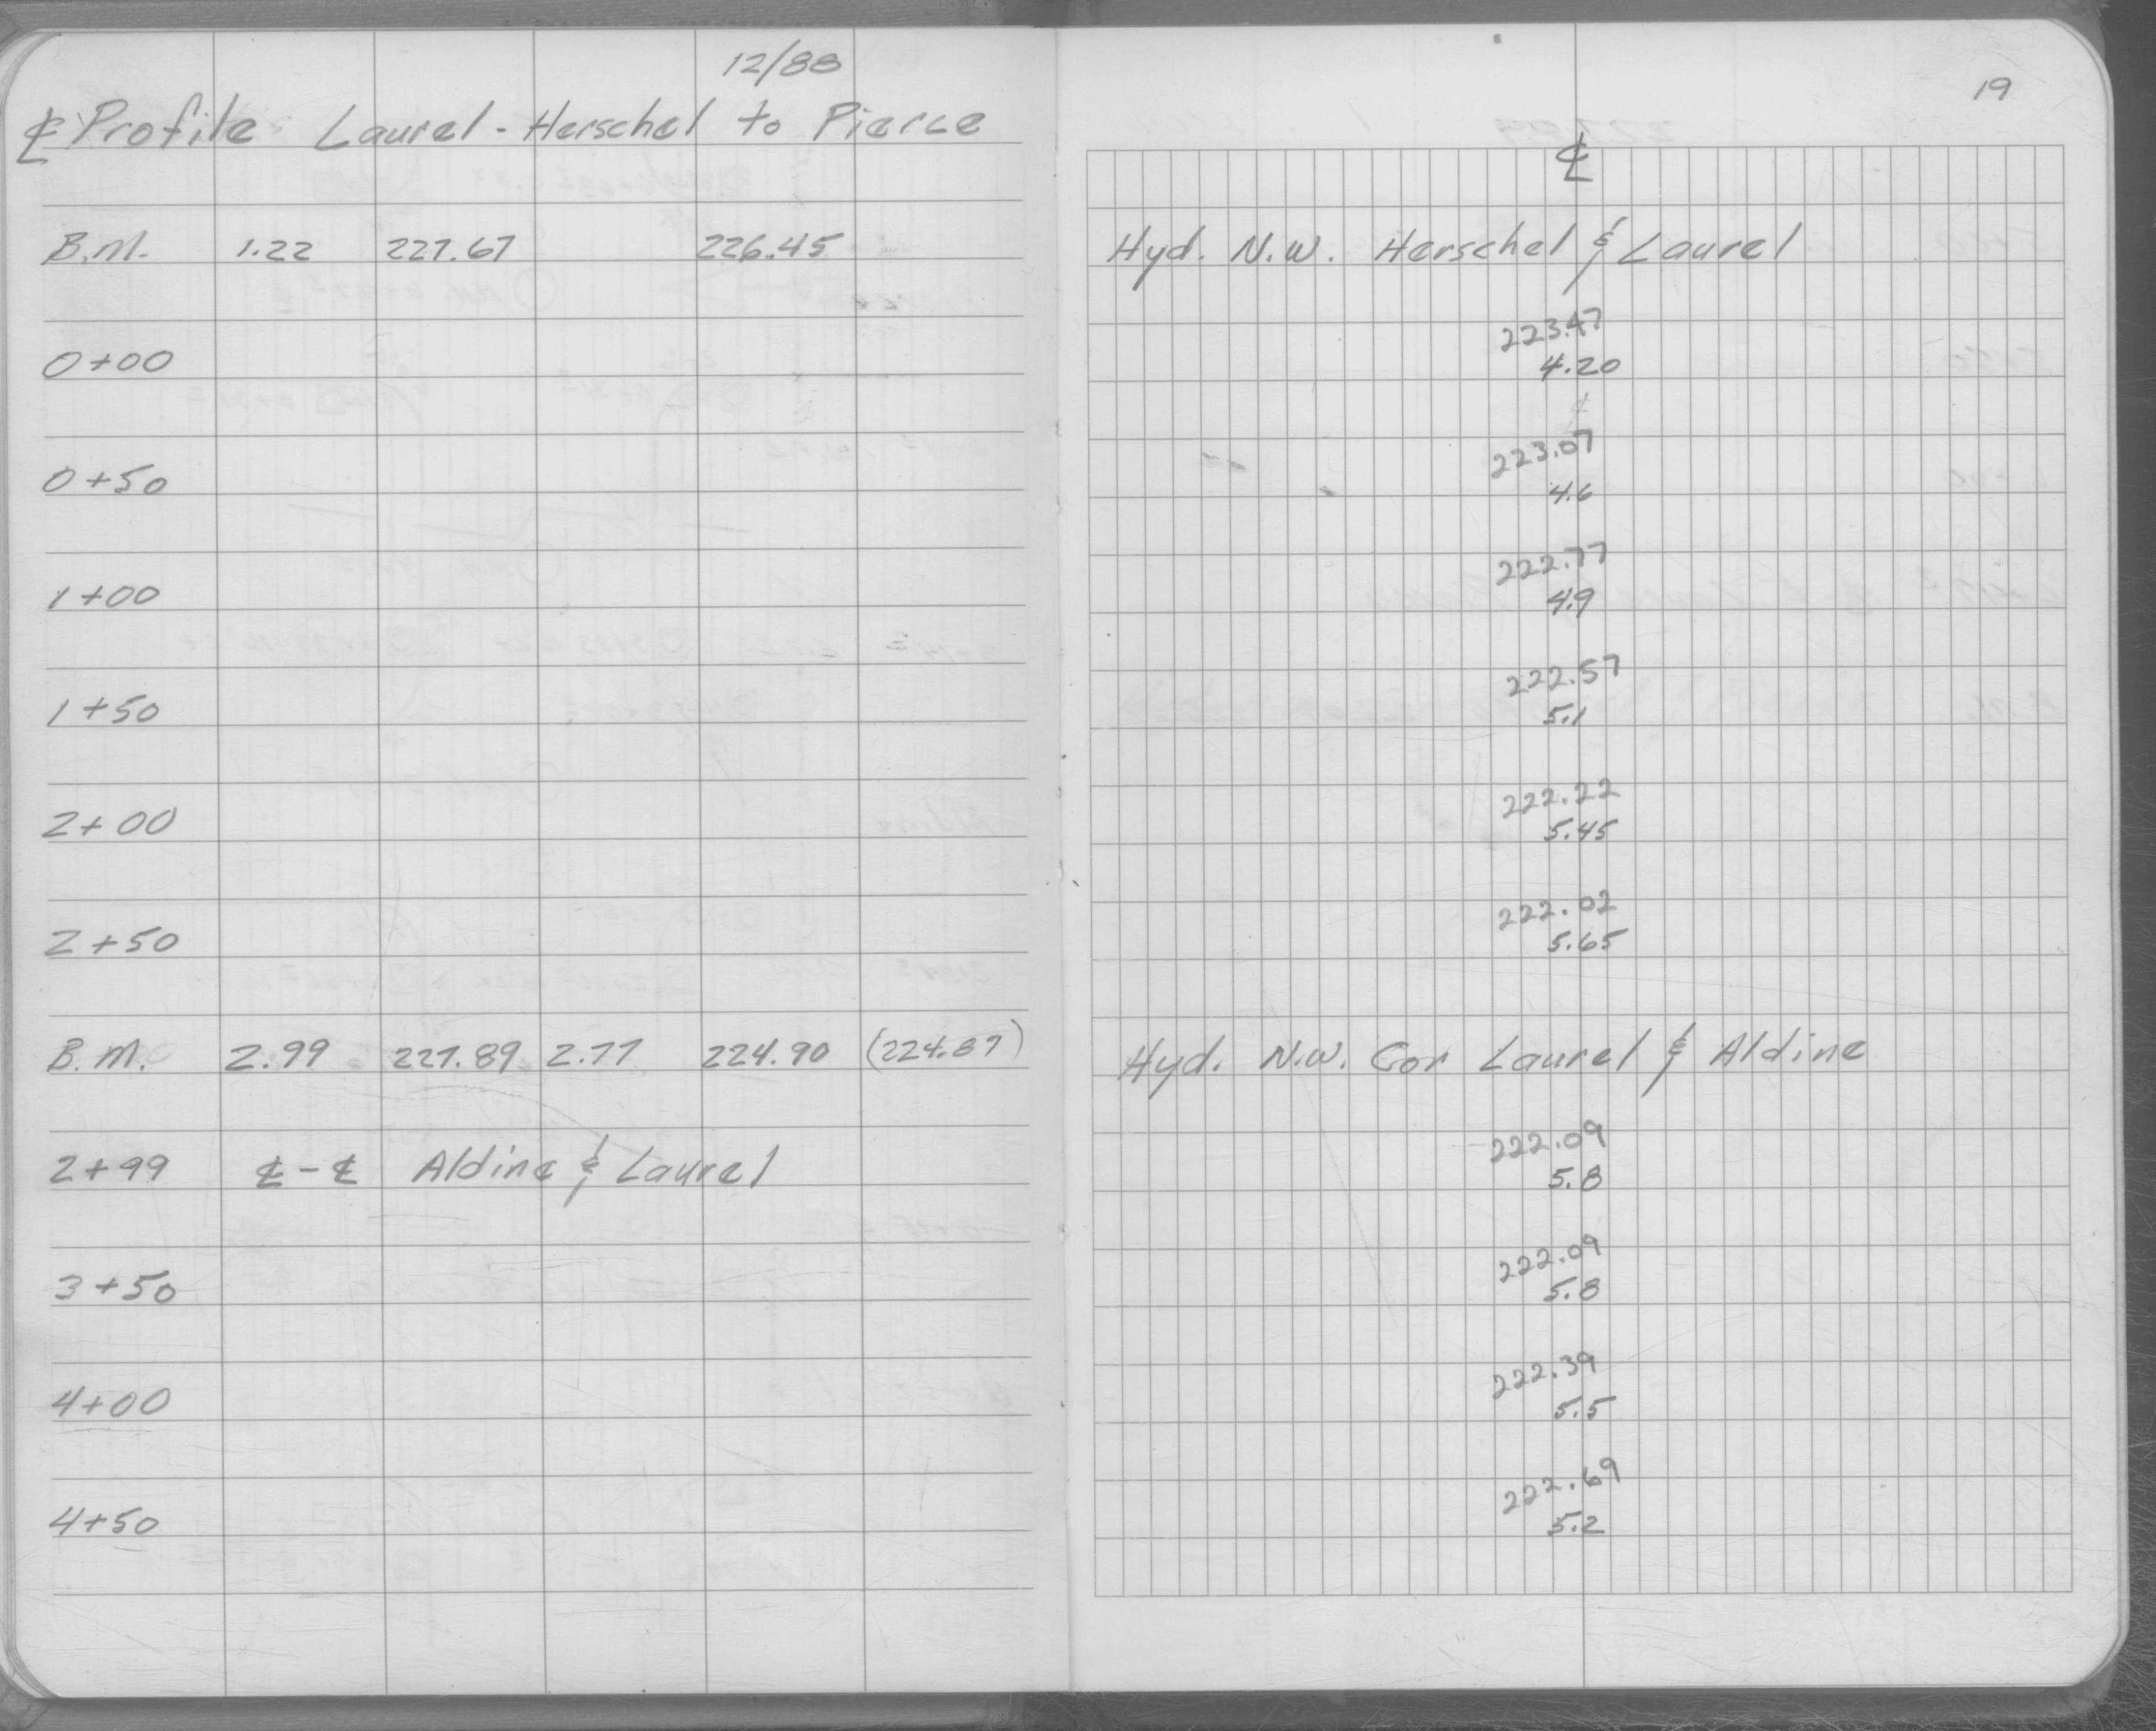 12/88
19
℄ Profile Laurel - Herschel to Pierce
℄
B.M. 1.22 227.67 226.45 Hyd. N.W. Herschel & Laurel
223.47
0+00 4.20
223.07
0+50 4.6
222.77
1+00 4.9
222.57
1+50 5.1
222.22
2+00 5.45
222.02
2+50 5.65
B.M. 2.99 227.89 2.77 224.90 (224.87) Hyd. N.W. Cor Laurel & Aldine
222.09
2+99 ℄-℄ Aldine & Laurel 5.8
222.09
3+50 5.8
222.39
4+00 5.5
222.69
4+50 5.2